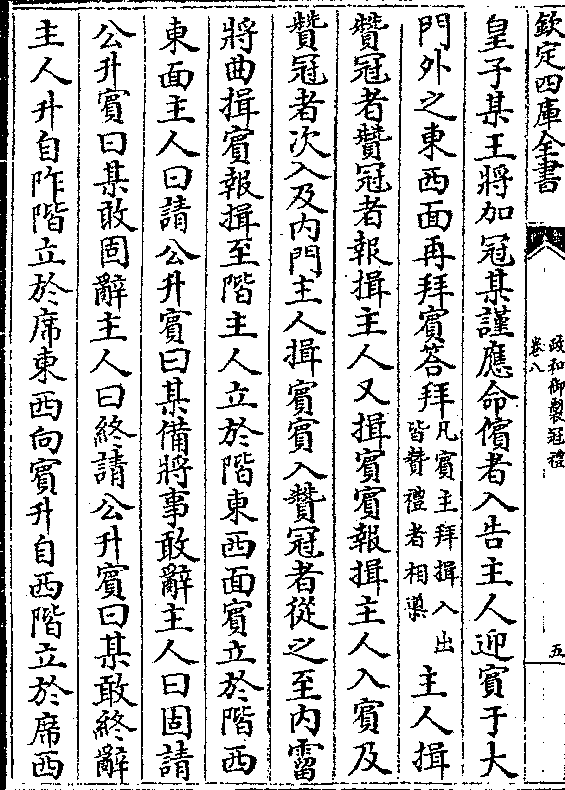 欽定四庫全書
政和御製冠禮
卷八
五
皇子某王將加冠某謹應命儐者入告主人迎賓于大
門外之東西面再拜賓答拜凡賓主拜揖入出皆贊禮者相導主人揖
贊冠者贊冠者報揖主人又揖賓賓報揖主人入賓及
贊冠者次入及内門主人揖賓賓入贊冠者從之至内霤
將曲揖賓報揖至階主人立於階東西面賓立於階西
東面主人曰請公升賓曰某備將事敢辭主人曰固請
公升賓曰某敢固辭主人曰終請公升賓曰某敢終辭
主人升自阼階立於席東西向賓升自西階立於席西